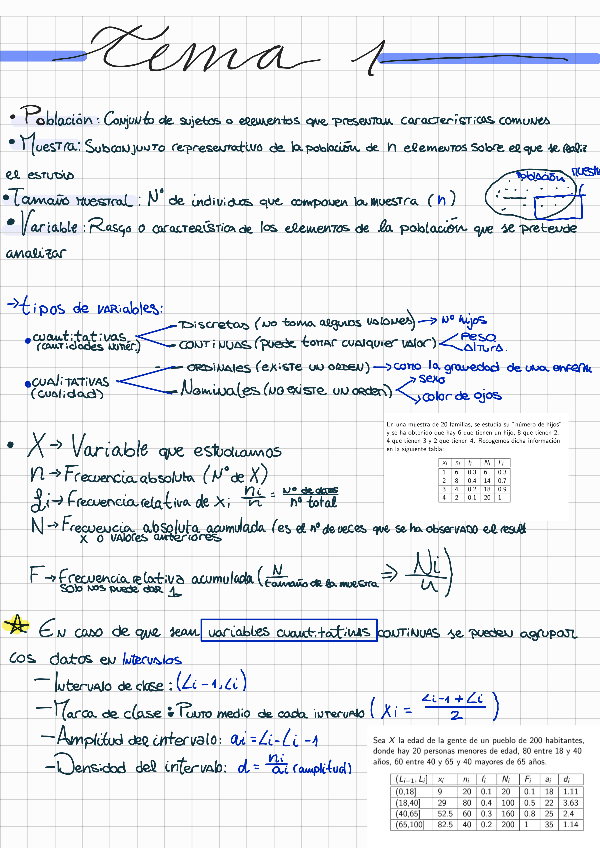 Tema 1
• Población: Conjunto de sujetos o elementos que presentan características comunes
• Muestra: Subconjunto representativo de la población de n elementos sobre el que se realiz
el estudio
población
• Tamaño muestral: Nº de individuos que componen la muestra (n)
• Variable: Rasgo o característica de los elementos de la población que se pretende
analizar
→ tipos de variables:
• cuantitativas
(cantidades numér.)
Discretas (no toma algunos valores) → nº hijos
continuas (puede tomar cualquier valor)
Peso
Altura.
• cualitativas
(cualidad)
ordinales (existe un orden) → como la gravedad de una enferm
Nominales (no existe un orden)
sexo
color de ojos
• X → Variable que estudiamos
n → Frecuencia absoluta (Nº de X)
fi → Frecuencia relativa de xi ni/n = nº de datos/nº total
N → Frecuencia absoluta acumulada (es el nº de veces que se ha observado el result
x o valores anteriores
F → Frecuencia relativa acumulada (N/tamaño de la muestra ⇒ Ni/n)
solo nos puede dar 1
En una muestra de 20 familias, se estudia su "número de hijos"
y se ha obtenido que hay 6 que tienen un hijo, 8 que tienen 2,
4 que tienen 3 y 2 que tiene 4. Recogemos dicha información
en la siguiente tabla:
xi ni fi Ni Fi
1 6 0.3 6 0.3
2 8 0.4 14 0.7
3 4 0.2 18 0.9
4 2 0.1 20 1
En caso de que sean variables cuantitativas continuas se pueden agrupar
los datos en intervalos
— Intervalo de clase: (Li-1, Li)
— Marca de clase: Punto medio de cada intervalo (xi = Li-1+Li/2)
— Amplitud del intervalo: ai = Li-Li-1
— Densidad del intervalo: d = ni/ai (amplitud)
Sea X la edad de la gente de un pueblo de 200 habitantes,
donde hay 20 personas menores de edad, 80 entre 18 y 40
años, 60 entre 40 y 65 y 40 mayores de 65 años.
(Li−1, Li] xi ni fi Ni Fi ai di
(0,18] 9 20 0.1 20 0.1 18 1.11
(18,40] 29 80 0.4 100 0.5 22 3.63
(40,65] 52.5 60 0.3 160 0.8 25 2.4
(65,100] 82.5 40 0.2 200 1 35 1.14